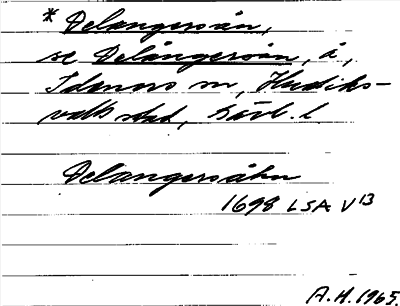 * Delangersån,
se Delångersån, å,
Idenors sn, Hudiks-
valls stad, Gävl. l
Delangersåhn
1698 LSA V 13
A.H. 1965.